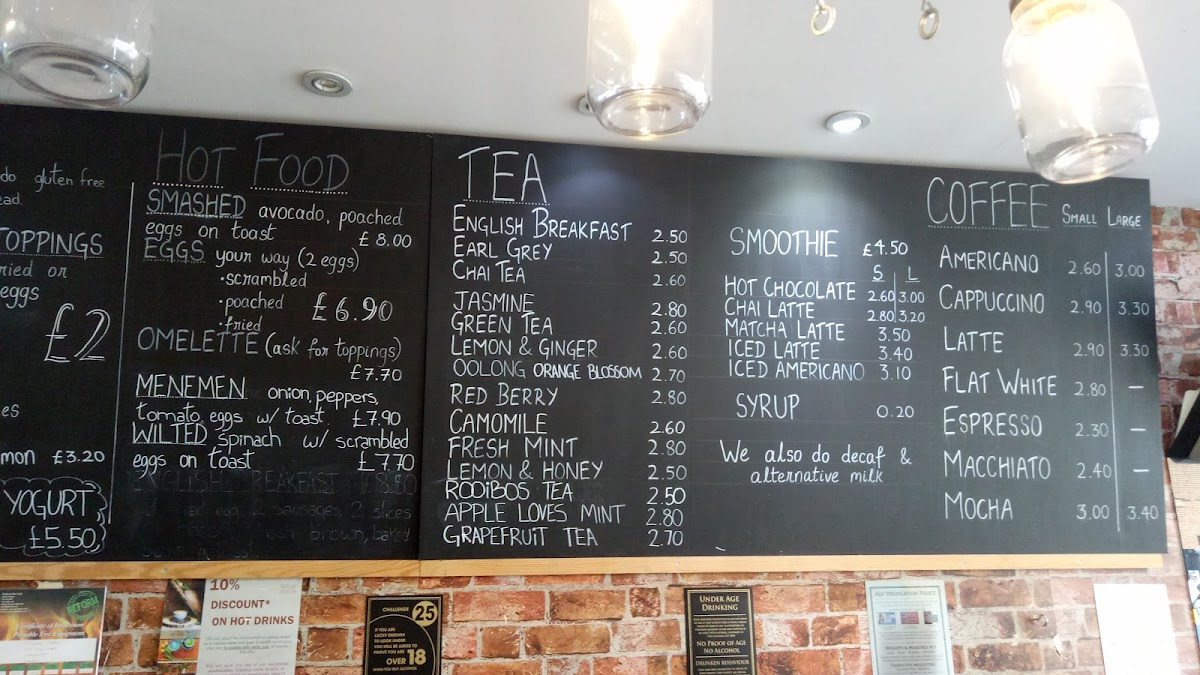 do gluten free
ead.
TOPPINGS
ried or
eggs
£2
es
mon £3.20
YOGURT
£5.50
HOT FOOD
SMASHED avocado, poached
eggs on toast £8.00
EGGS your way (2 eggs)
• scrambled
• poached £6.90
• fried
OMELETTE (ask for toppings)
£7.70
MENEMEN onion, peppers,
tomato, eggs w/ toast. £7.90
WILTED spinach w/ scrambled
eggs on toast £7.70
ENGLISH BREAKFAST £8.90
egg, 2 sausages, 2 slices
brown, baked
TEA
ENGLISH BREAKFAST 2.50
EARL GREY 2.50
CHAI TEA 2.60
JASMINE 2.80
GREEN TEA 2.60
LEMON & GINGER 2.60
OOLONG ORANGE BLOSSOM 2.70
RED BERRY 2.80
CAMOMILE 2.60
FRESH MINT 2.80
LEMON & HONEY 2.50
ROOIBOS TEA 2.50
APPLE LOVES MINT 2.80
GRAPEFRUIT TEA 2.70
SMOOTHIE £4.50
S L
HOT CHOCOLATE 2.60 3.00
CHAI LATTE 2.80 3.20
MATCHA LATTE 3.50
ICED LATTE 3.40
ICED AMERICANO 3.10
SYRUP 0.20
We also do decaf &
alternative milk
COFFEE SMALL LARGE
AMERICANO 2.60 3.00
CAPPUCCINO 2.90 3.30
LATTE 2.90 3.30
FLAT WHITE 2.80 —
ESPRESSO 2.30 —
MACCHIATO 2.40 —
MOCHA 3.00 3.40
REFORM
10%
DISCOUNT*
ON HOT DRINKS
CHALLENGE 25
IF YOU ARE
LUCKY ENOUGH
TO LOOK UNDER
25 YOU WILL BE ASKED TO
PROVE YOU ARE
OVER 18
WHEN YOU BUY ALCOHOL
UNDER AGE
DRINKING
NO PROOF OF AGE
NO ALCOHOL
DRUNKEN BEHAVIOUR
AGE VERIFICATION POLICY